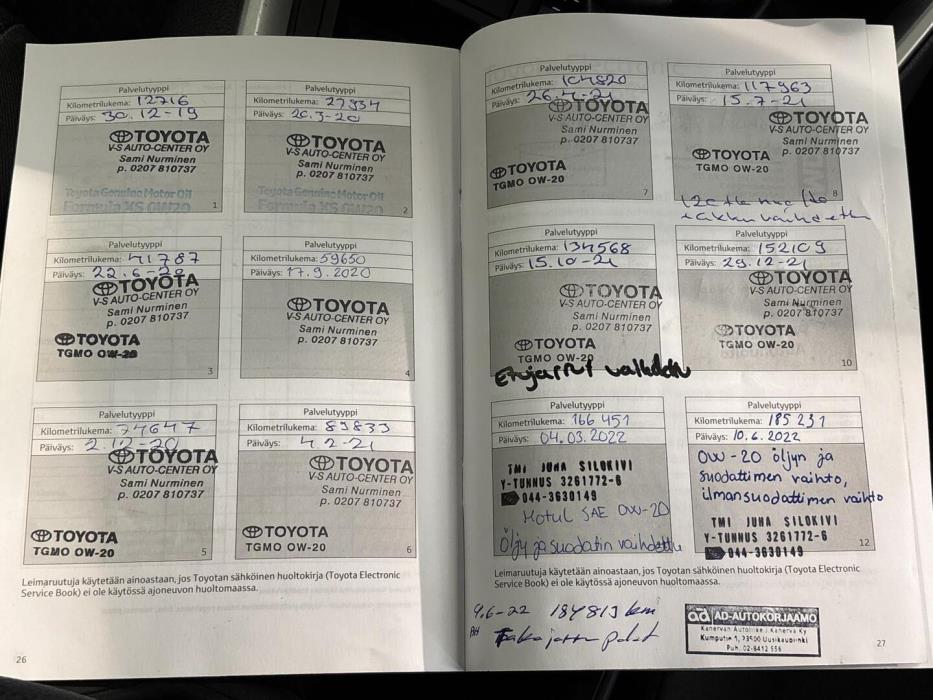 Palvelutyyppi
Kilometrilukema: 12716
Päiväys: 30.12-19
TOYOTA
V-S AUTO-CENTER OY
Sami Nurminen
p. 0207 810737
Toyota Genuine Motor Oil
Formula XS 0W20
1
Palvelutyyppi
Kilometrilukema: 27934
Päiväys: 20.3-20
TOYOTA
V-S AUTO-CENTER OY
Sami Nurminen
p. 0207 810737
Toyota Genuine Motor Oil
Formula XS 0W20
2
Palvelutyyppi
Kilometrilukema: 41787
Päiväys: 22.6-20
TOYOTA
V-S AUTO-CENTER OY
Sami Nurminen
p. 0207 810737
TOYOTA
TGMO OW-20
3
Palvelutyyppi
Kilometrilukema: 59650
Päiväys: 17.9.2020
TOYOTA
V-S AUTO-CENTER OY
Sami Nurminen
p. 0207 810737
4
Palvelutyyppi
Kilometrilukema: 74647
Päiväys: 2.12-20
TOYOTA
V-S AUTO-CENTER OY
Sami Nurminen
p. 0207 810737
TOYOTA
TGMO OW-20
5
Palvelutyyppi
Kilometrilukema: 89833
Päiväys: 4.2-21
TOYOTA
V-S AUTO-CENTER OY
Sami Nurminen
p. 0207 810737
TOYOTA
TGMO OW-20
6
Leimaruutuja käytetään ainoastaan, jos Toyotan sähköinen huoltokirja (Toyota Electronic
Service Book) ei ole käytössä ajoneuvon huoltomaassa.
26
Palvelutyyppi
Kilometrilukema: 104820
Päiväys: 26.4-21
TOYOTA
V-S AUTO-CENTER OY
Sami Nurminen
p. 0207 810737
TOYOTA
TGMO OW-20
7
Palvelutyyppi
Kilometrilukema: 117963
Päiväys: 15.7-21
TOYOTA
V-S AUTO-CENTER OY
Sami Nurminen
p. 0207 810737
TOYOTA
TGMO OW-20
8
vaihdettu
Palvelutyyppi
Kilometrilukema: 134568
Päiväys: 15.10-21
TOYOTA
V-S AUTO-CENTER OY
Sami Nurminen
p. 0207 810737
TOYOTA
TGMO OW-20
Etujarrut vaihdettu
Palvelutyyppi
Kilometrilukema: 152109
Päiväys: 29.12-21
TOYOTA
V-S AUTO-CENTER OY
Sami Nurminen
p. 0207 810737
TOYOTA
TGMO OW-20
10
Palvelutyyppi
Kilometrilukema: 166 451
Päiväys: 04.03.2022
TMI JUHA SILOKIVI
Y-TUNNUS 3261772-6
044-3630149
Motul SAE OW-20
Öljy ja suodatin vaihdettu
Palvelutyyppi
Kilometrilukema: 185 231
Päiväys: 10.6.2022
OW-20 öljyn ja
suodattimen vaihto,
ilmansuodattimen vaihto
TMI JUHA SILOKIVI
Y-TUNNUS 3261772-6
044-3630149
12
Leimaruutuja käytetään ainoastaan, jos Toyotan sähköinen huoltokirja (Toyota Electronic
Service Book) ei ole käytössä ajoneuvon huoltomaassa.
9.6-22 184813 km
Taka jarru palat
ad AD-AUTOKORJAAMO
Kanervan Autoliike J Kanerva Ky
Kumputie 1, 23500 Uusikaupunki
Puh. 02-8412 556
27